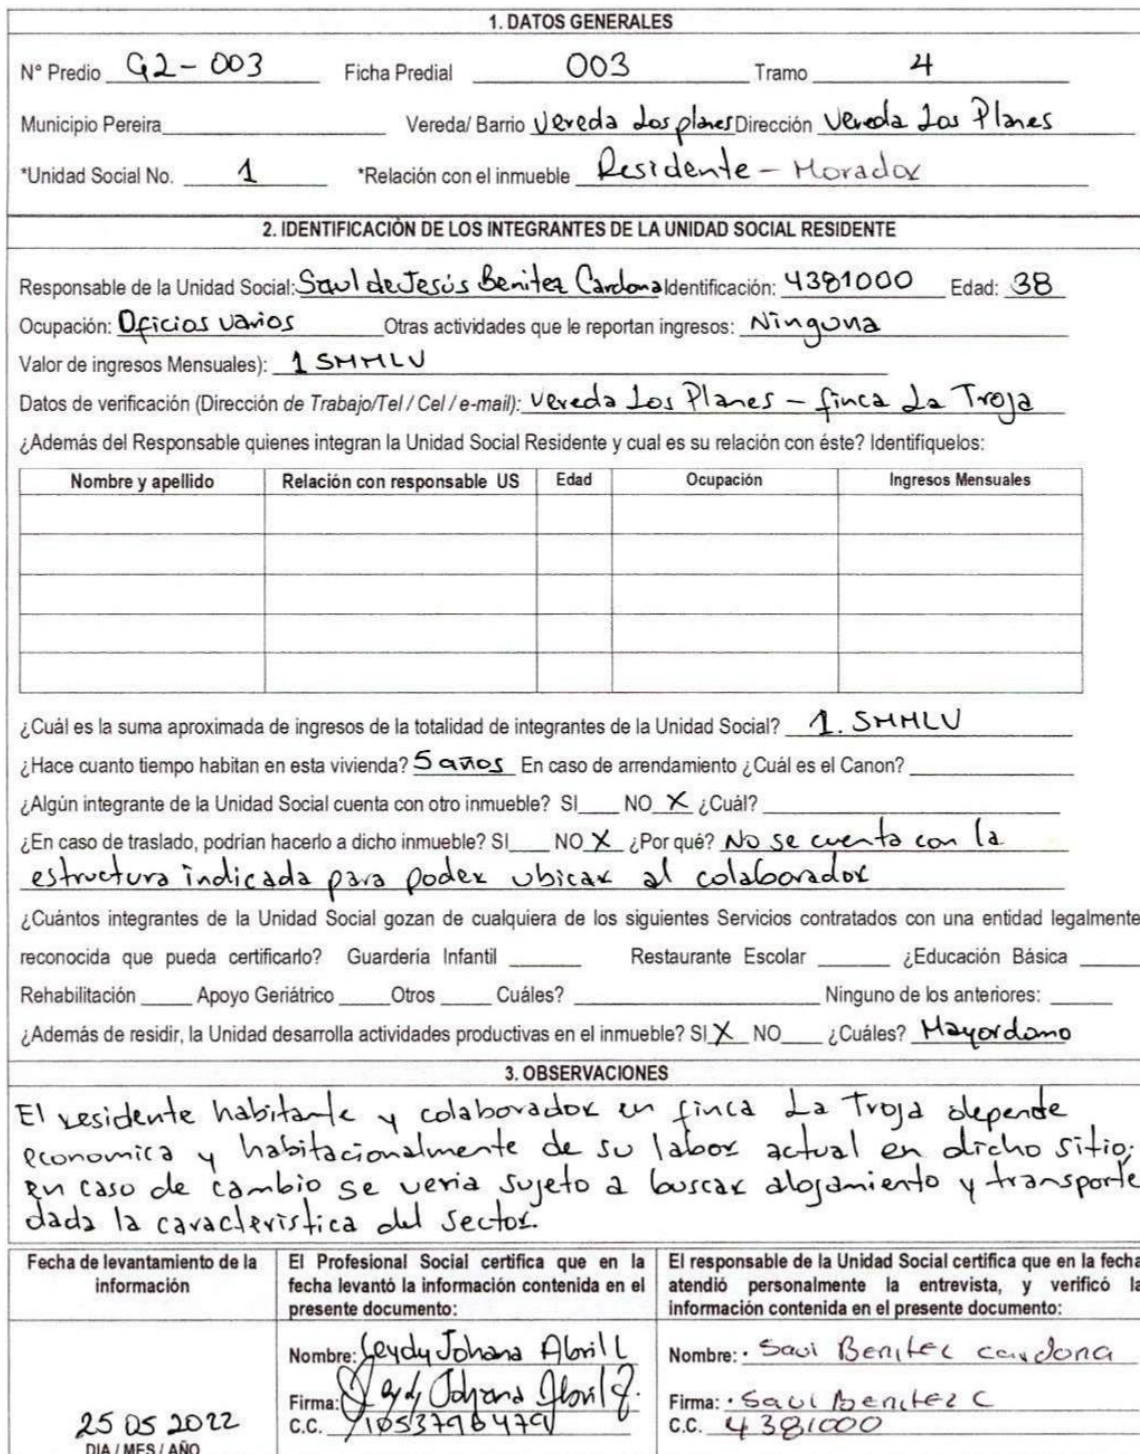 1. DATOS GENERALES
N° Predio G2-003 Ficha Predial 003 Tramo 4
Municipio Pereira Vereda/ Barrio Vereda Los planes Dirección Vereda Los Planes
*Unidad Social No. 1 *Relación con el inmueble Residente - Morador
2. IDENTIFICACIÓN DE LOS INTEGRANTES DE LA UNIDAD SOCIAL RESIDENTE
Responsable de la Unidad Social: Saul de Jesús Benitez Cardona Identificación: 4381000 Edad: 38
Ocupación: Oficios varios Otras actividades que le reportan ingresos: Ninguna
Valor de ingresos Mensuales): 1 SMMLV
Datos de verificación (Dirección de Trabajo/Tel / Cel / e-mail): Vereda Los Planes - finca La Troja
¿Además del Responsable quienes integran la Unidad Social Residente y cual es su relación con éste? Identifíquelos:
Nombre y apellido Relación con responsable US Edad Ocupación Ingresos Mensuales
¿Cuál es la suma aproximada de ingresos de la totalidad de integrantes de la Unidad Social? 1. SMMLV
¿Hace cuanto tiempo habitan en esta vivienda? 5 años En caso de arrendamiento ¿Cuál es el Canon?
¿Algún integrante de la Unidad Social cuenta con otro inmueble? SI NO X ¿Cuál?
¿En caso de traslado, podrían hacerlo a dicho inmueble? SI NO X ¿Por qué? No se cuenta con la
estructura indicada para poder ubicar al colaborador
¿Cuántos integrantes de la Unidad Social gozan de cualquiera de los siguientes Servicios contratados con una entidad legalmente
reconocida que pueda certificarlo? Guardería Infantil Restaurante Escolar ¿Educación Básica
Rehabilitación Apoyo Geriátrico Otros Cuáles? Ninguno de los anteriores:
¿Además de residir, la Unidad desarrolla actividades productivas en el inmueble? SI X NO ¿Cuáles? Mayordomo
3. OBSERVACIONES
El residente habitante y colaborador en finca La Troja depende
economica y habitacionalmente de su labor actual en dicho sitio;
en caso de cambio se veria sujeto a buscar alojamiento y transporte
dada la caracteristica del sector.
Fecha de levantamiento de la información
El Profesional Social certifica que en la fecha levantó la información contenida en el presente documento:
El responsable de la Unidad Social certifica que en la fecha atendió personalmente la entrevista, y verificó la información contenida en el presente documento:
Nombre: Leydy Johana Abril L
Firma: Leydy Johana Abril
C.C.
Nombre: Saul Benitez cardona
Firma: Saul Benitez C
C.C. 4381000
25 05 2022
DIA / MES / AÑO